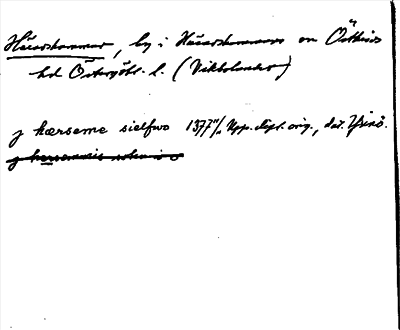 Häradshammar, by i Häradshammars sn Östkinds
hd Östergötl. l. (Vikbolandet)
j hærseme sielfwo 1377 11/6 Upp. dipl. orig., dat.